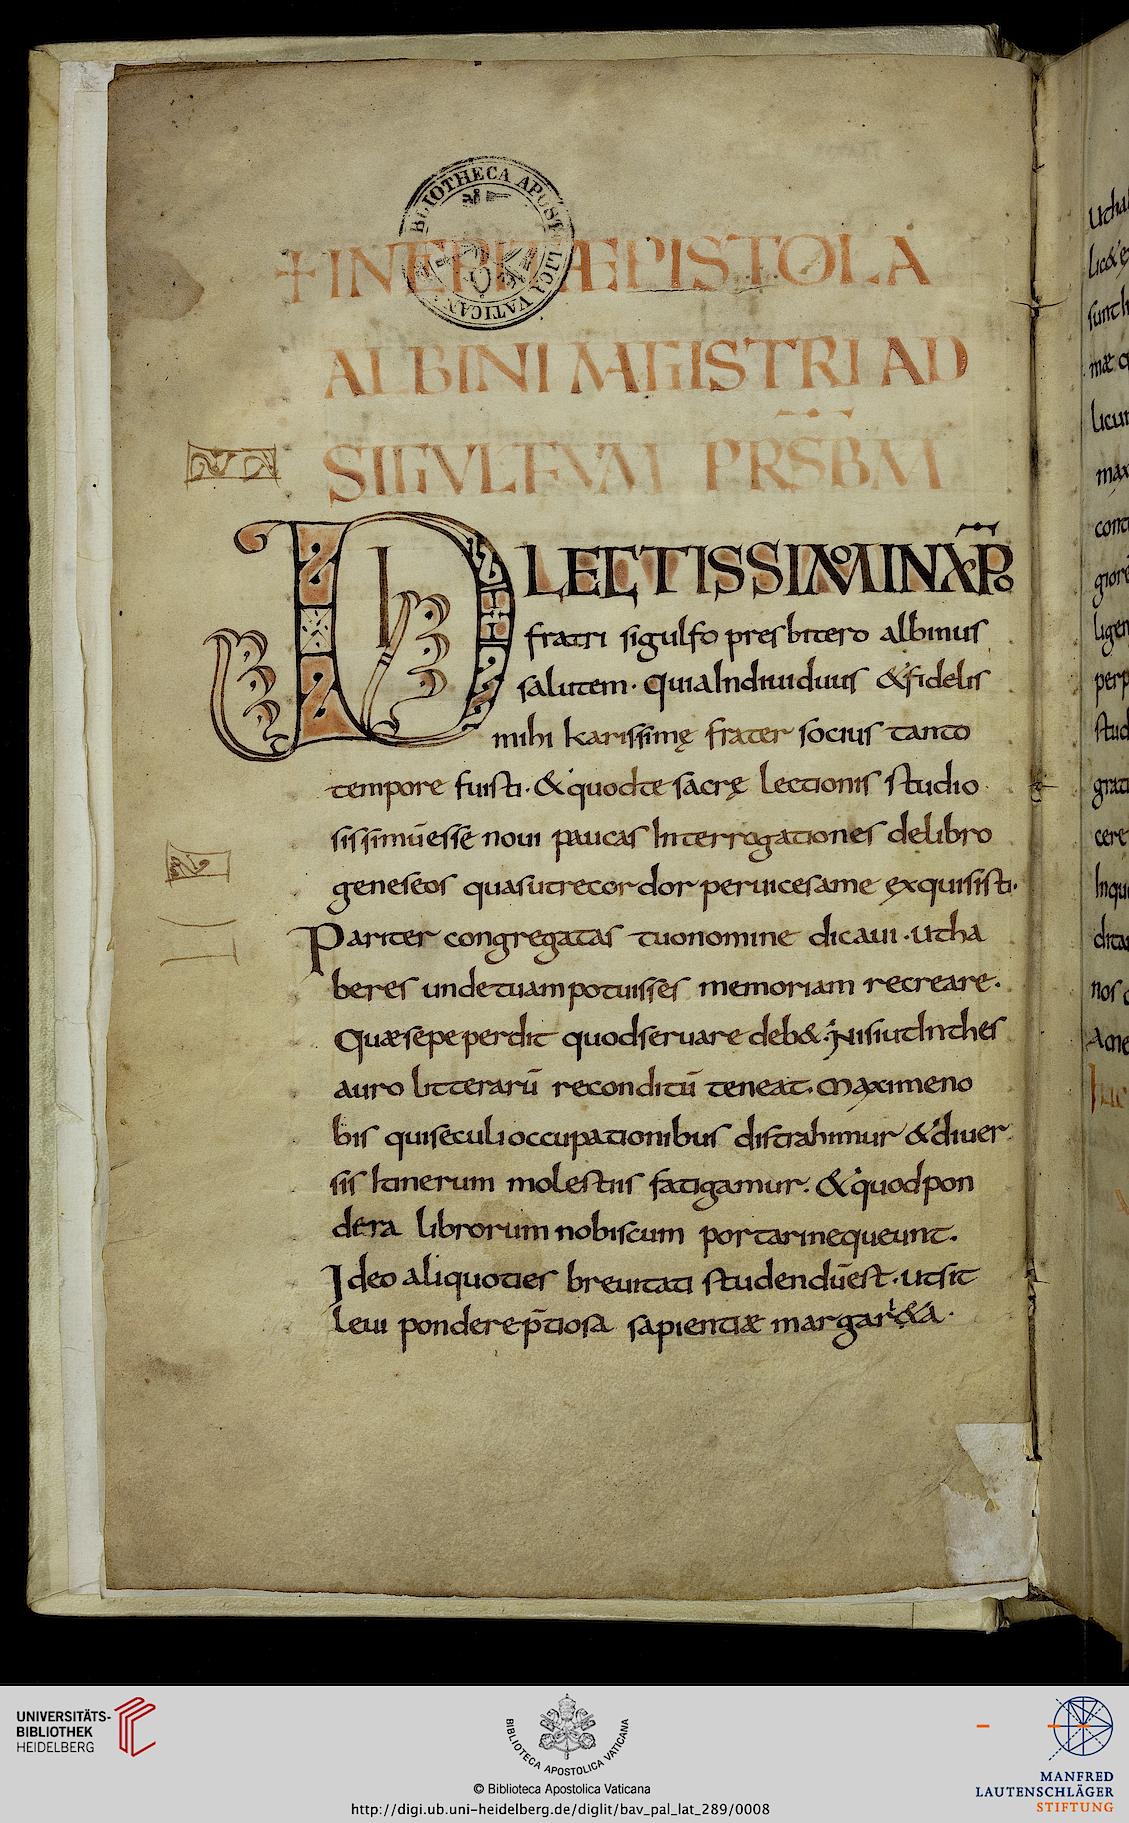 + INCIPIT ÆPISTOLA
ALBINI MAGISTRI AD
SIGVLFVM PRS̄BM
DILECTISSIMO IN XP̄O
fratri sigulfo presbitero albinus
salutem · quia Indiuiduus & fidelis
mihi karissimę frater socius tanto
tempore fuisti · & quod te sacrę lectionis studio
sissimū esse noui paucas Interrogationes de libro
geneseos quas ut recordor peruices a me exquisisti ·
Pariter congregatas tuo nomine dicaui · ut ha
beres unde tuam potuisses memoriam recreare ·
Quæ sepe perdit quod seruare deb& · Nisi ut In thes
auro litterarū reconditū teneat · Maxime no
bis qui seculi occupationibus distrahimur & diuer
sis Itinerum molestiis fatigamur · & quod pon
dera librorum nobiscum portari nequeunt ·
Ideo aliquoties breuitati studendū est · ut sit
leui pondere p̄tiosa sapientiæ margarita ·
BIBLIOTHECA APOSTOLICA VATICANA
UNIVERSITÄTS-
BIBLIOTHEK
HEIDELBERG
BIBLIOTECA APOSTOLICA VATICANA
© Biblioteca Apostolica Vaticana
http://digi.ub.uni-heidelberg.de/diglit/bav_pal_lat_289/0008
MANFRED
LAUTENSCHLÄGER
STIFTUNG